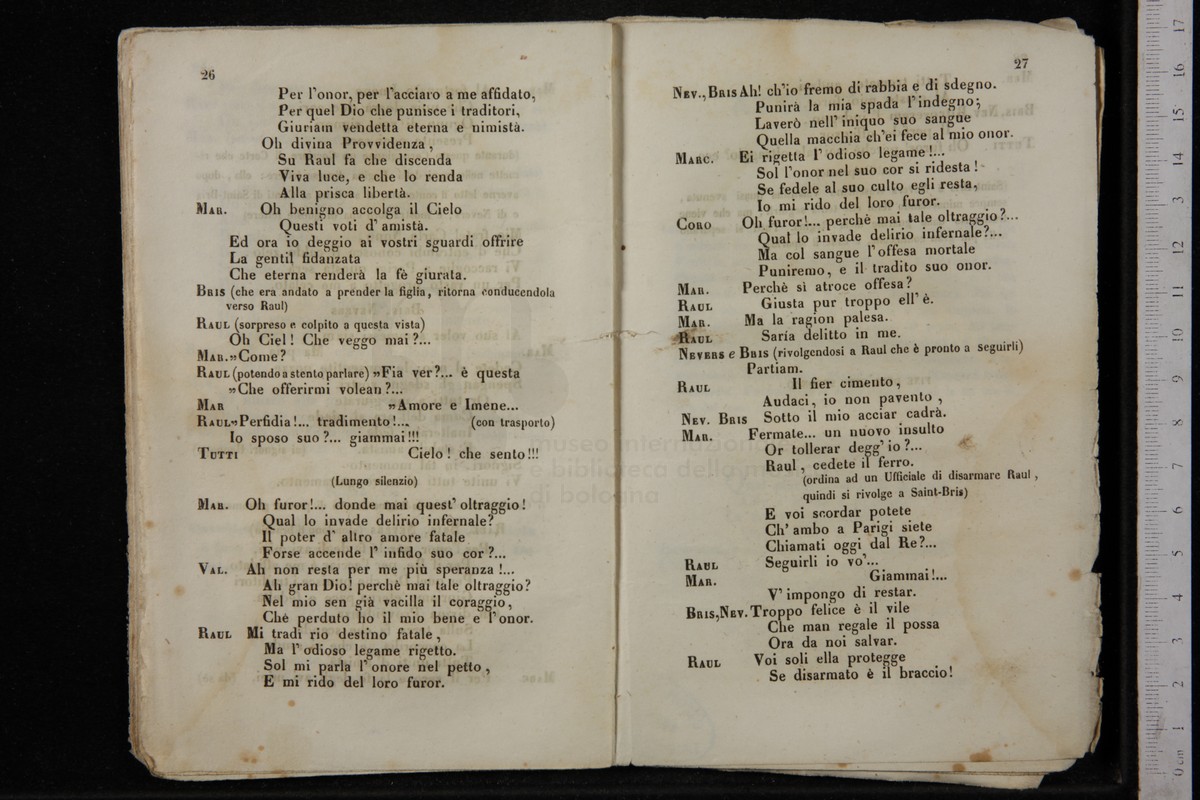 26
Per l'onor, per l'acciaro a me affidato,
Per quel Dio che punisce i traditori,
Giuriam vendetta eterna e nimistà.
Oh divina Provvidenza,
Su Raul fa che discenda
Viva luce, e che lo renda
Alla prisca libertà.
MAR. Oh benigno accolga il Cielo
Questi voti d' amistà.
Ed ora io deggio ai vostri sguardi offrire
La gentil fidanzata
Che eterna renderà la fè giurata.
BRIS (che era andato a prender la figlia, ritorna conducendola
verso Raul)
RAUL (sorpreso e colpito a questa vista)
Oh Ciel! Che veggo mai?...
MAR. »Come?
RAUL (potendo a stento parlare) »Fia ver?... è questa
»Che offerirmi volean?...
MAR »Amore e Imene...
RAUL »Perfidia!... tradimento!... (con trasporto)
Io sposo suo?... giammai!!!
TUTTI Cielo! che sento!!!
(Lungo silenzio)
MAR. Oh furor!... donde mai quest' oltraggio!
Qual lo invade delirio infernale?
Il poter d' altro amore fatale
Forse accende l' infido suo cor?...
VAL. Ah non resta per me più speranza!...
Ah gran Dio! perchè mai tale oltraggio?
Nel mio sen già vacilla il coraggio,
Chè perduto ho il mio bene e l'onor.
RAUL Mi tradì rio destino fatale,
Ma l' odioso legame rigetto.
Sol mi parla l' onore nel petto,
E mi rido del loro furor.
27
NEV., BRIS Ah! ch'io fremo di rabbia e di sdegno.
Punirà la mia spada l' indegno;
Laverò nell' iniquo suo sangue
Quella macchia ch'ei fece al mio onor.
MARC. Ei rigetta l' odioso legame!...
Sol l'onor nel suo cor si ridesta!
Se fedele al suo culto egli resta,
Io mi rido del loro furor.
CORO Oh furor!... perchè mai tale oltraggio?...
Qual lo invade delirio infernale?...
Ma col sangue l'offesa mortale
Puniremo, e il tradito suo onor.
MAR. Perchè sì atroce offesa?
RAUL Giusta pur troppo ell' è.
MAR. Ma la ragion palesa.
RAUL Saria delitto in me.
NEVERS e BRIS (rivolgendosi a Raul che è pronto a seguirli)
Partiam.
RAUL Il fier cimento,
Audaci, io non pavento,
NEV. BRIS Sotto il mio acciar cadrà.
MAR. Fermate... un nuovo insulto
Or tollerar degg' io?...
Raul, cedete il ferro.
(ordina ad un Ufficiale di disarmare Raul,
quindi si rivolge a Saint-Bris)
E voi scordar potete
Ch' ambo a Parigi siete
Chiamati oggi dal Re?...
RAUL Seguirli io vo'...
MAR. Giammai!...
V' impongo di restar.
BRIS, NEV. Troppo felice è il vile
Che man regale il possa
Ora da noi salvar.
RAUL Voi soli ella protegge
Se disarmato è il braccio!
museo internazionale
e biblioteca della m
di bologna
0 cm 1 2 3 4 5 6 7 8 9 10 11 12 13 14 15 16 17